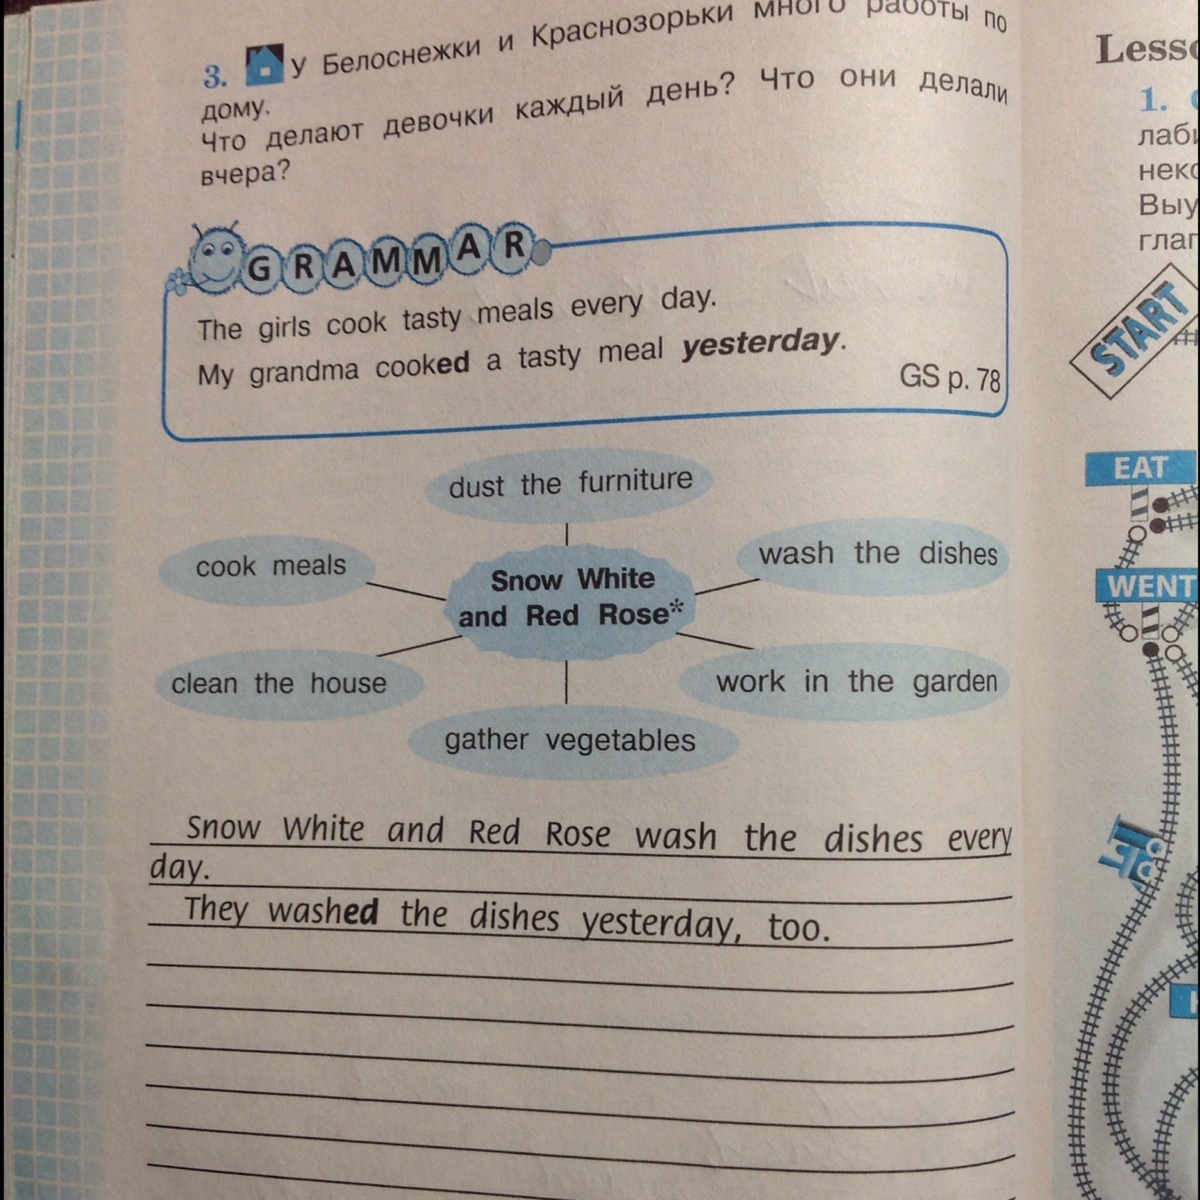 3. У Белоснежки и Краснозорьки много работы по
дому.
Что делают девочки каждый день? Что они делали
вчера?
GRAMMAR
The girls cook tasty meals every day.
My grandma cooked a tasty meal yesterday.
GS p. 78
dust the furniture
cook meals
wash the dishes
Snow White
and Red Rose*
clean the house
work in the garden
gather vegetables
Snow White and Red Rose wash the dishes every
day.
They washed the dishes yesterday, too.
1.
START
EAT
WENT